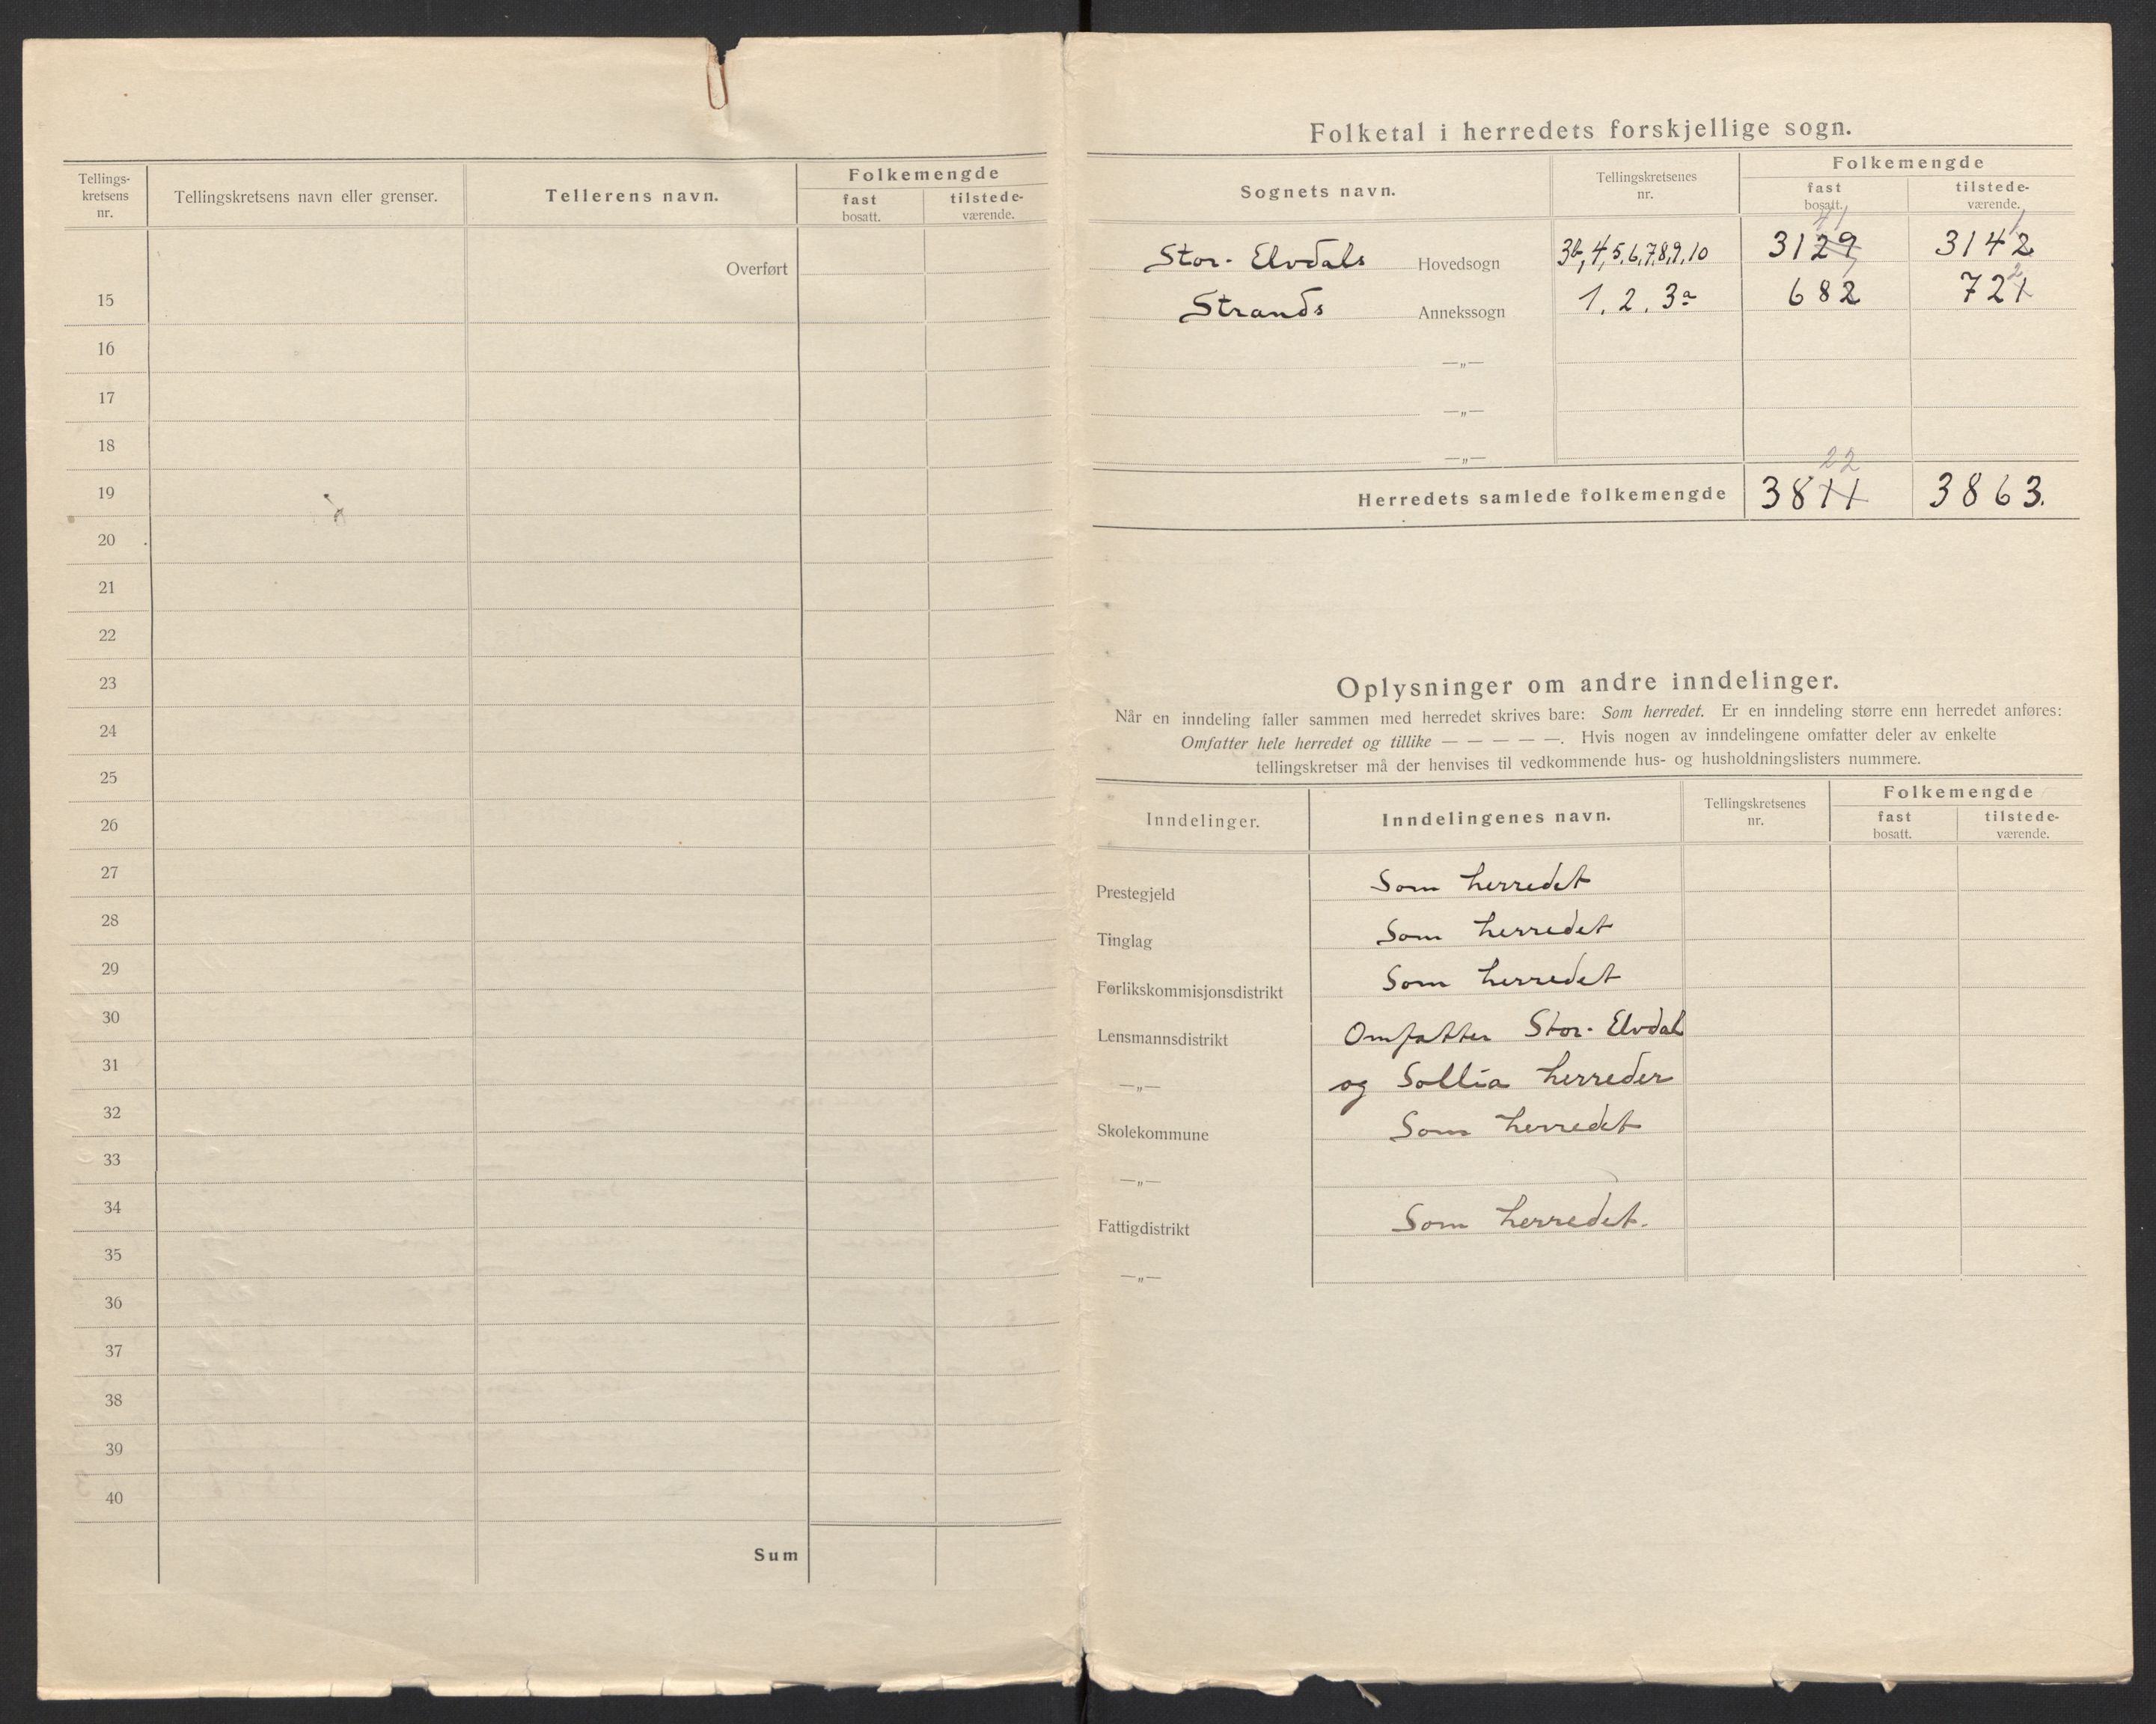 Tellings-
kretsens
nr.
Tellingskretsens navn eller grenser.
Tellerens navn.
Folkemengde
fast
bosatt.
tilstede-
værende.
Overført
15
16
17
18
19
20
21
22
23
24
25
26
27
28
29
30
31
32
33
34
35
36
37
38
39
40
Sum
Folketal i herredets forskjellige sogn.
Sognets navn.
Tellingskretsenes
nr.
Folkemengde
fast
bosatt.
tilstede-
værende.
41 1
Stor-Elvdals Hovedsogn 3b, 4, 5, 6, 7, 8, 9, 10 3129 3142
1 2
Strands Annekssogn 1. 2. 3a 682 721
—„—
—„—
—„—
22
Herredets samlede folkemengde 3811 3863.
Oplysninger om andre inndelinger.
Når en inndeling faller sammen med herredet skrives bare: Som herredet. Er en inndeling større enn herredet anføres:
Omfatter hele herredet og tillike — — — — —. Hvis nogen av inndelingene omfatter deler av enkelte
tellingskretser må der henvises til vedkommende hus- og husholdningslisters nummere.
Inndelinger.
Inndelingenes navn.
Tellingskretsenes
nr.
Folkemengde
fast
bosatt.
tilstede-
værende.
Prestegjeld Som herredet
Tinglag Som herredet
Forlikskommisjonsdistrikt Som herredet
Lensmannsdistrikt Omfatter Stor-Elvdal
—„— og Sollia herreder
Skolekommune Som herredet
—„—
Fattigdistrikt Som herredet.
—„—